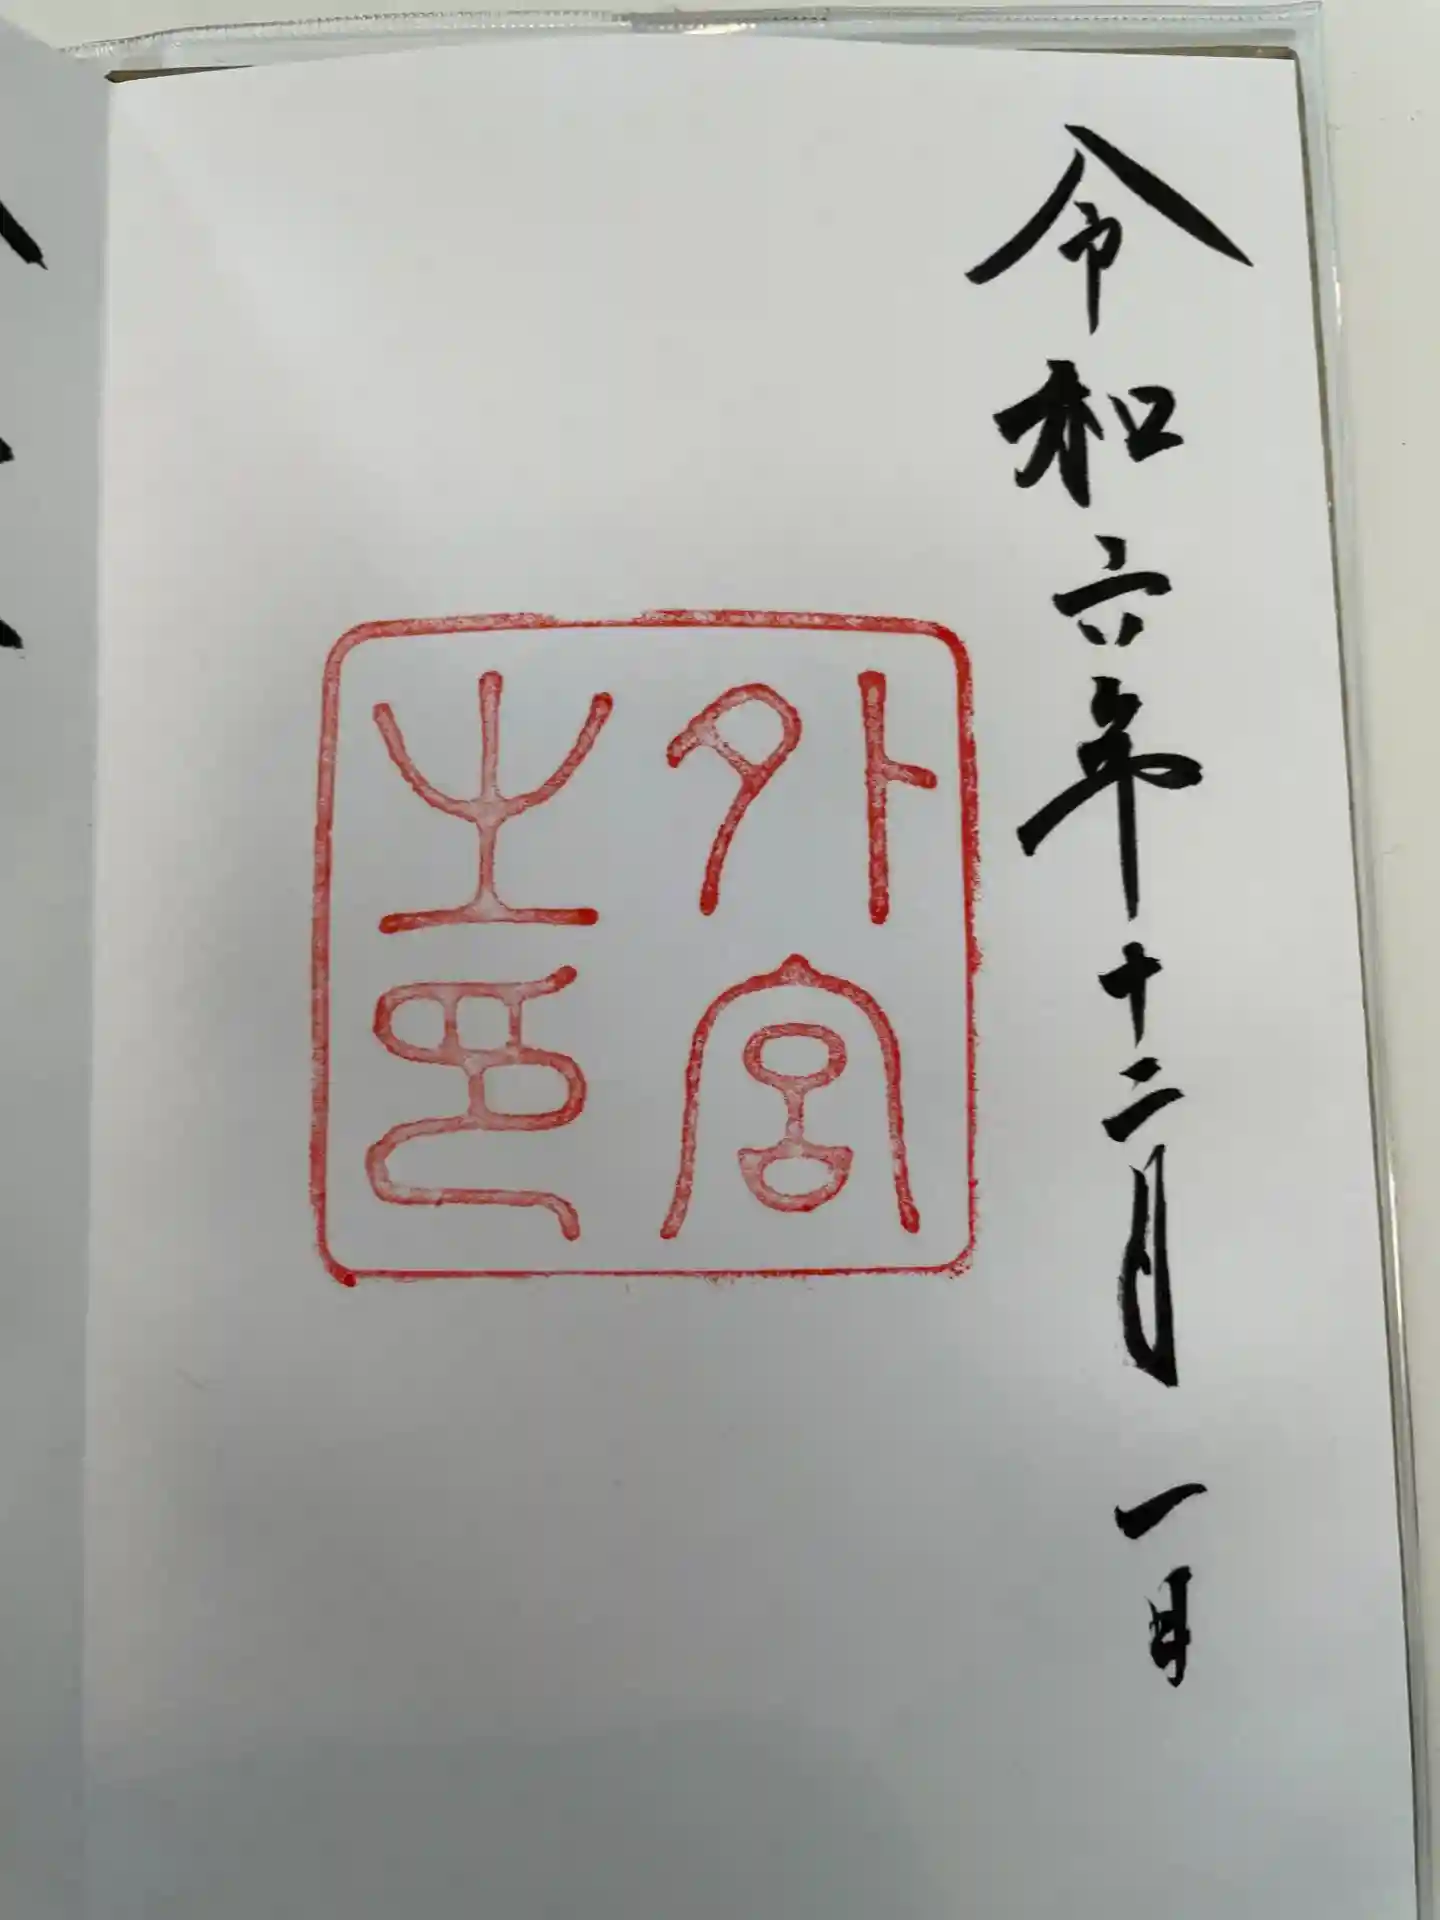 令和六年十二月一日
外宮
之印